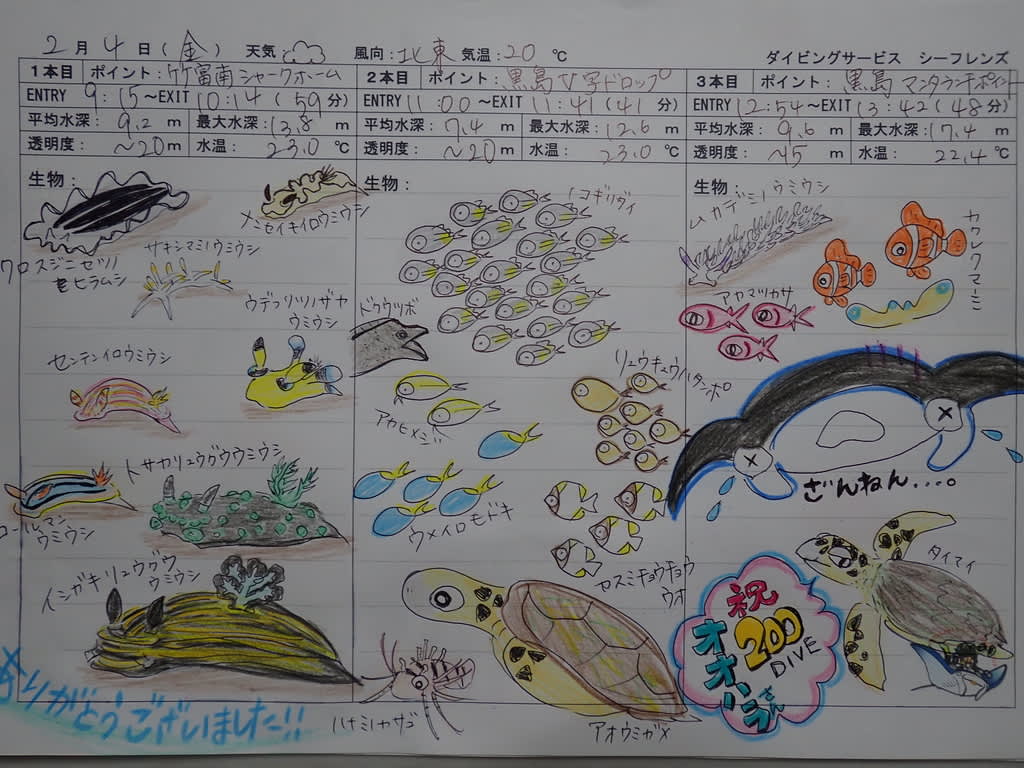 2月4日(金) 天気: 風向:北東 気温:20℃
ダイビングサービス シーフレンズ
1本目 ポイント:竹富南シャークホーム
ENTRY 9:15~EXIT 10:14(59分)
平均水深: 9.2m 最大水深:13.8m
透明度: ~20m 水温: 23.0℃
生物:
クロスジニセツノ
ヒラムシ
メニセイキイロウミウシ
サキシマミノウミウシ
ウデフリツノザヤ
ウミウシ
センテンイロウミウシ
トサカリュウグウウミウシ
コールマン
ウミウシ
イシガキリュウグウ
ウミウシ
ありがとうございました!!
2本目 ポイント:黒島V字ドロップ
ENTRY 11:00~EXIT 11:41(41分)
平均水深: 7.4m 最大水深: 12.6m
透明度: ~20m 水温: 23.0℃
生物:
ノコギリダイ
ドクウツボ
リュウキュウハタンポ
アカヒメジ
ウメイロモドキ
カスミチョウチョウ
ウオ
ハナミノカサゴ
アオウミガメ
3本目 ポイント:黒島 マンタランチポイント
ENTRY 12:54~EXIT 13:42(48分)
平均水深: 9.6m 最大水深:17.4m
透明度: ~15m 水温: 22.4℃
生物:
ムカデミノウミウシ
カクレクマノミ
アカマツカサ
ざんねん....。
タイマイ
祝
200
DIVE
オオハラさん